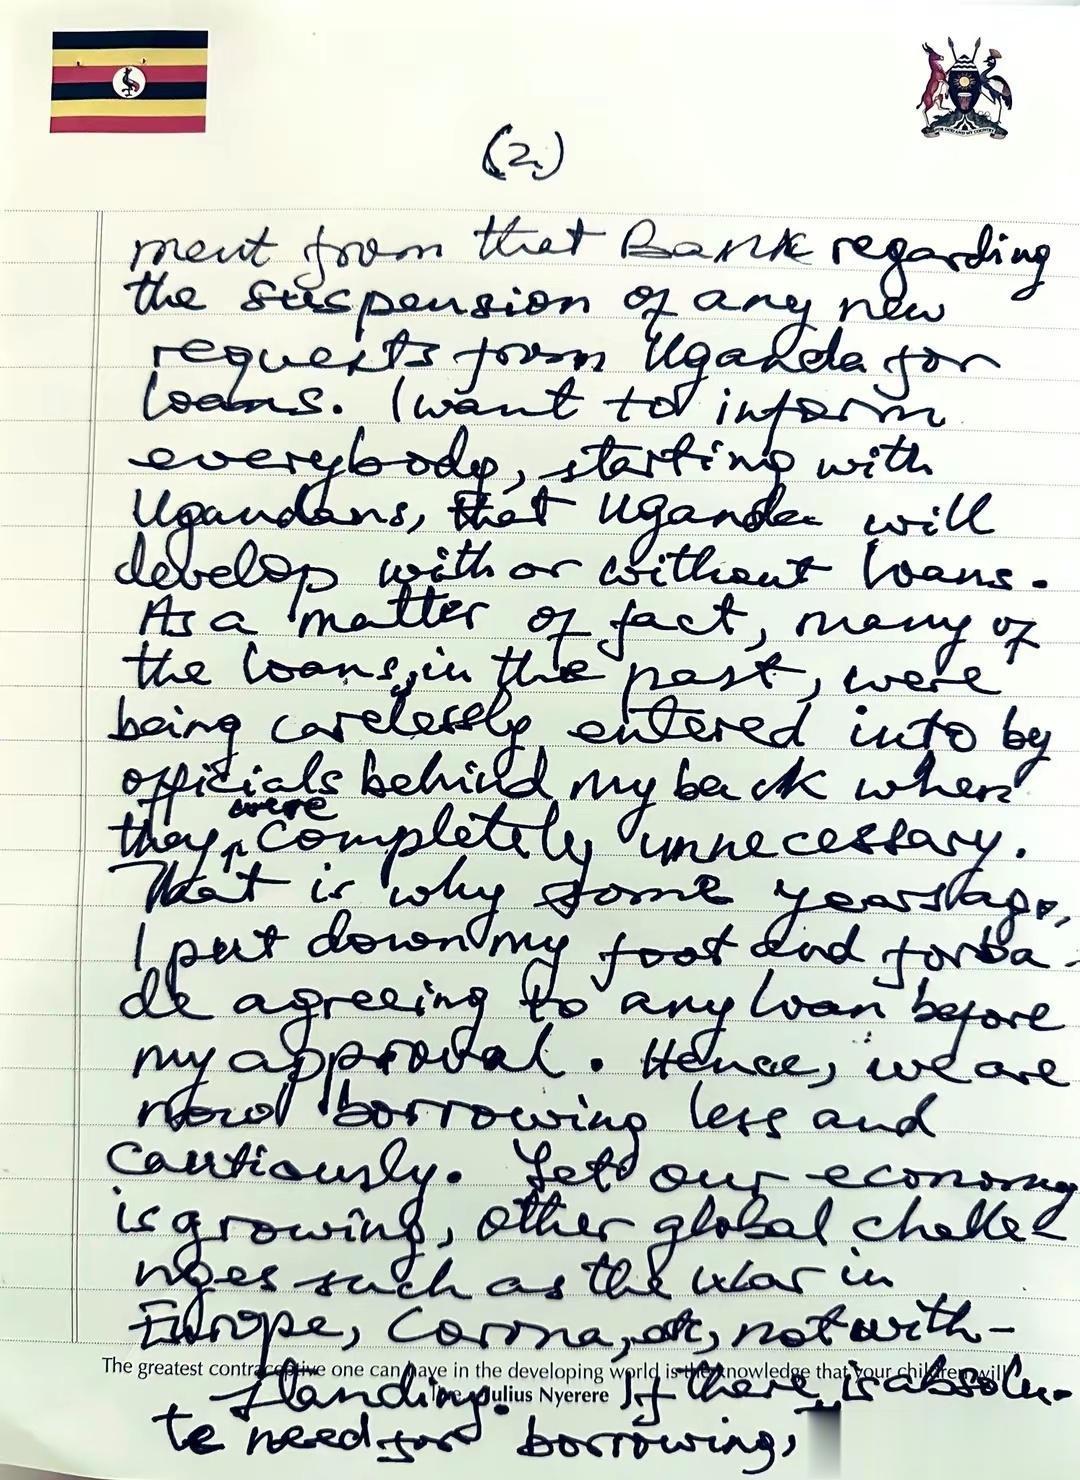 (2.)
ment from that Bank regarding
the suspension of any new
requests from Uganda for
loans. I want to inform
everybody, starting with
Ugandans, that Uganda will
develop with or without loans.
As a matter of fact, many of
the loans, in the past, were
being carelessly entered into by
officials behind my back when
were
they completely unnecessary.
That is why some years ago,
I put down my foot and forba-
de agreeing to any loan before
my approval. Hence, we are
now borrowing less and
cautiously. Yet our economy
is growing, other global challe-
nges such as the war in
Europe, Corona, etc, notwith-
The greatest contraceptive one can have in the developing world is the knowledge that your children will
standing. If there is absolu-
Julius Nyerere
te need for borrowing,